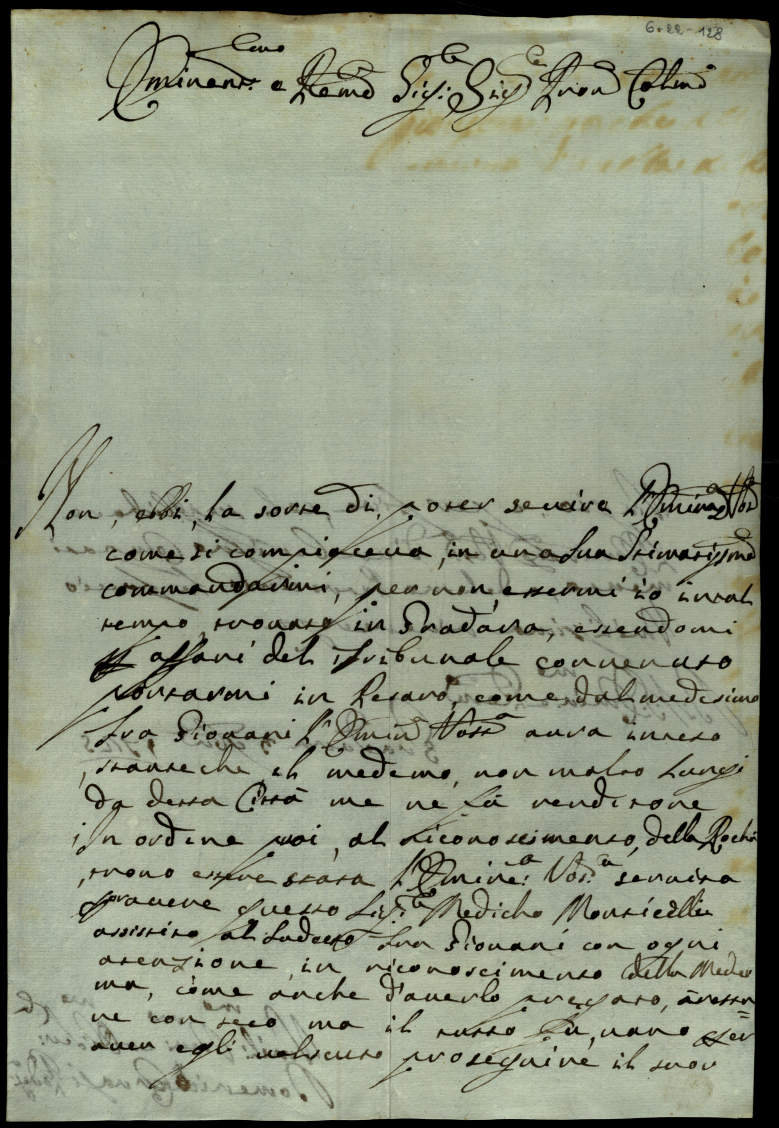 6-22-128
Eminent.mo e Rmo Sig:re Sig.re Pron Colmo
Non, ebbi, la sorte di, poter servire l'Emin.a Vos.a
come si compiaceva, in una sua stimatissma
commandarmi, per non, essermi io in tal
tempo, trovato in Gradara, essendomi
affari del Tribunale convenuto
portarmi in Pesaro, come dal medesimo
fra Giovani l'Emin.a Voss.a avra inteso
, stante che il medemo, non molto lungi
da detta Città me ne fà
in ordine poi, al riconoscimento, della Rocha
, trovo essere stata l'Emine:a Vos.a servita
questo Sig.re Medicho Monticelli
assistito al sudetto fra Giovani con ogni
atenzione, in riconoscimento della Mede
ma, come anche d'averlo pregato, à resta
re con seco, ma il tutto fù, vano
aver egli voluto proseguire il suo